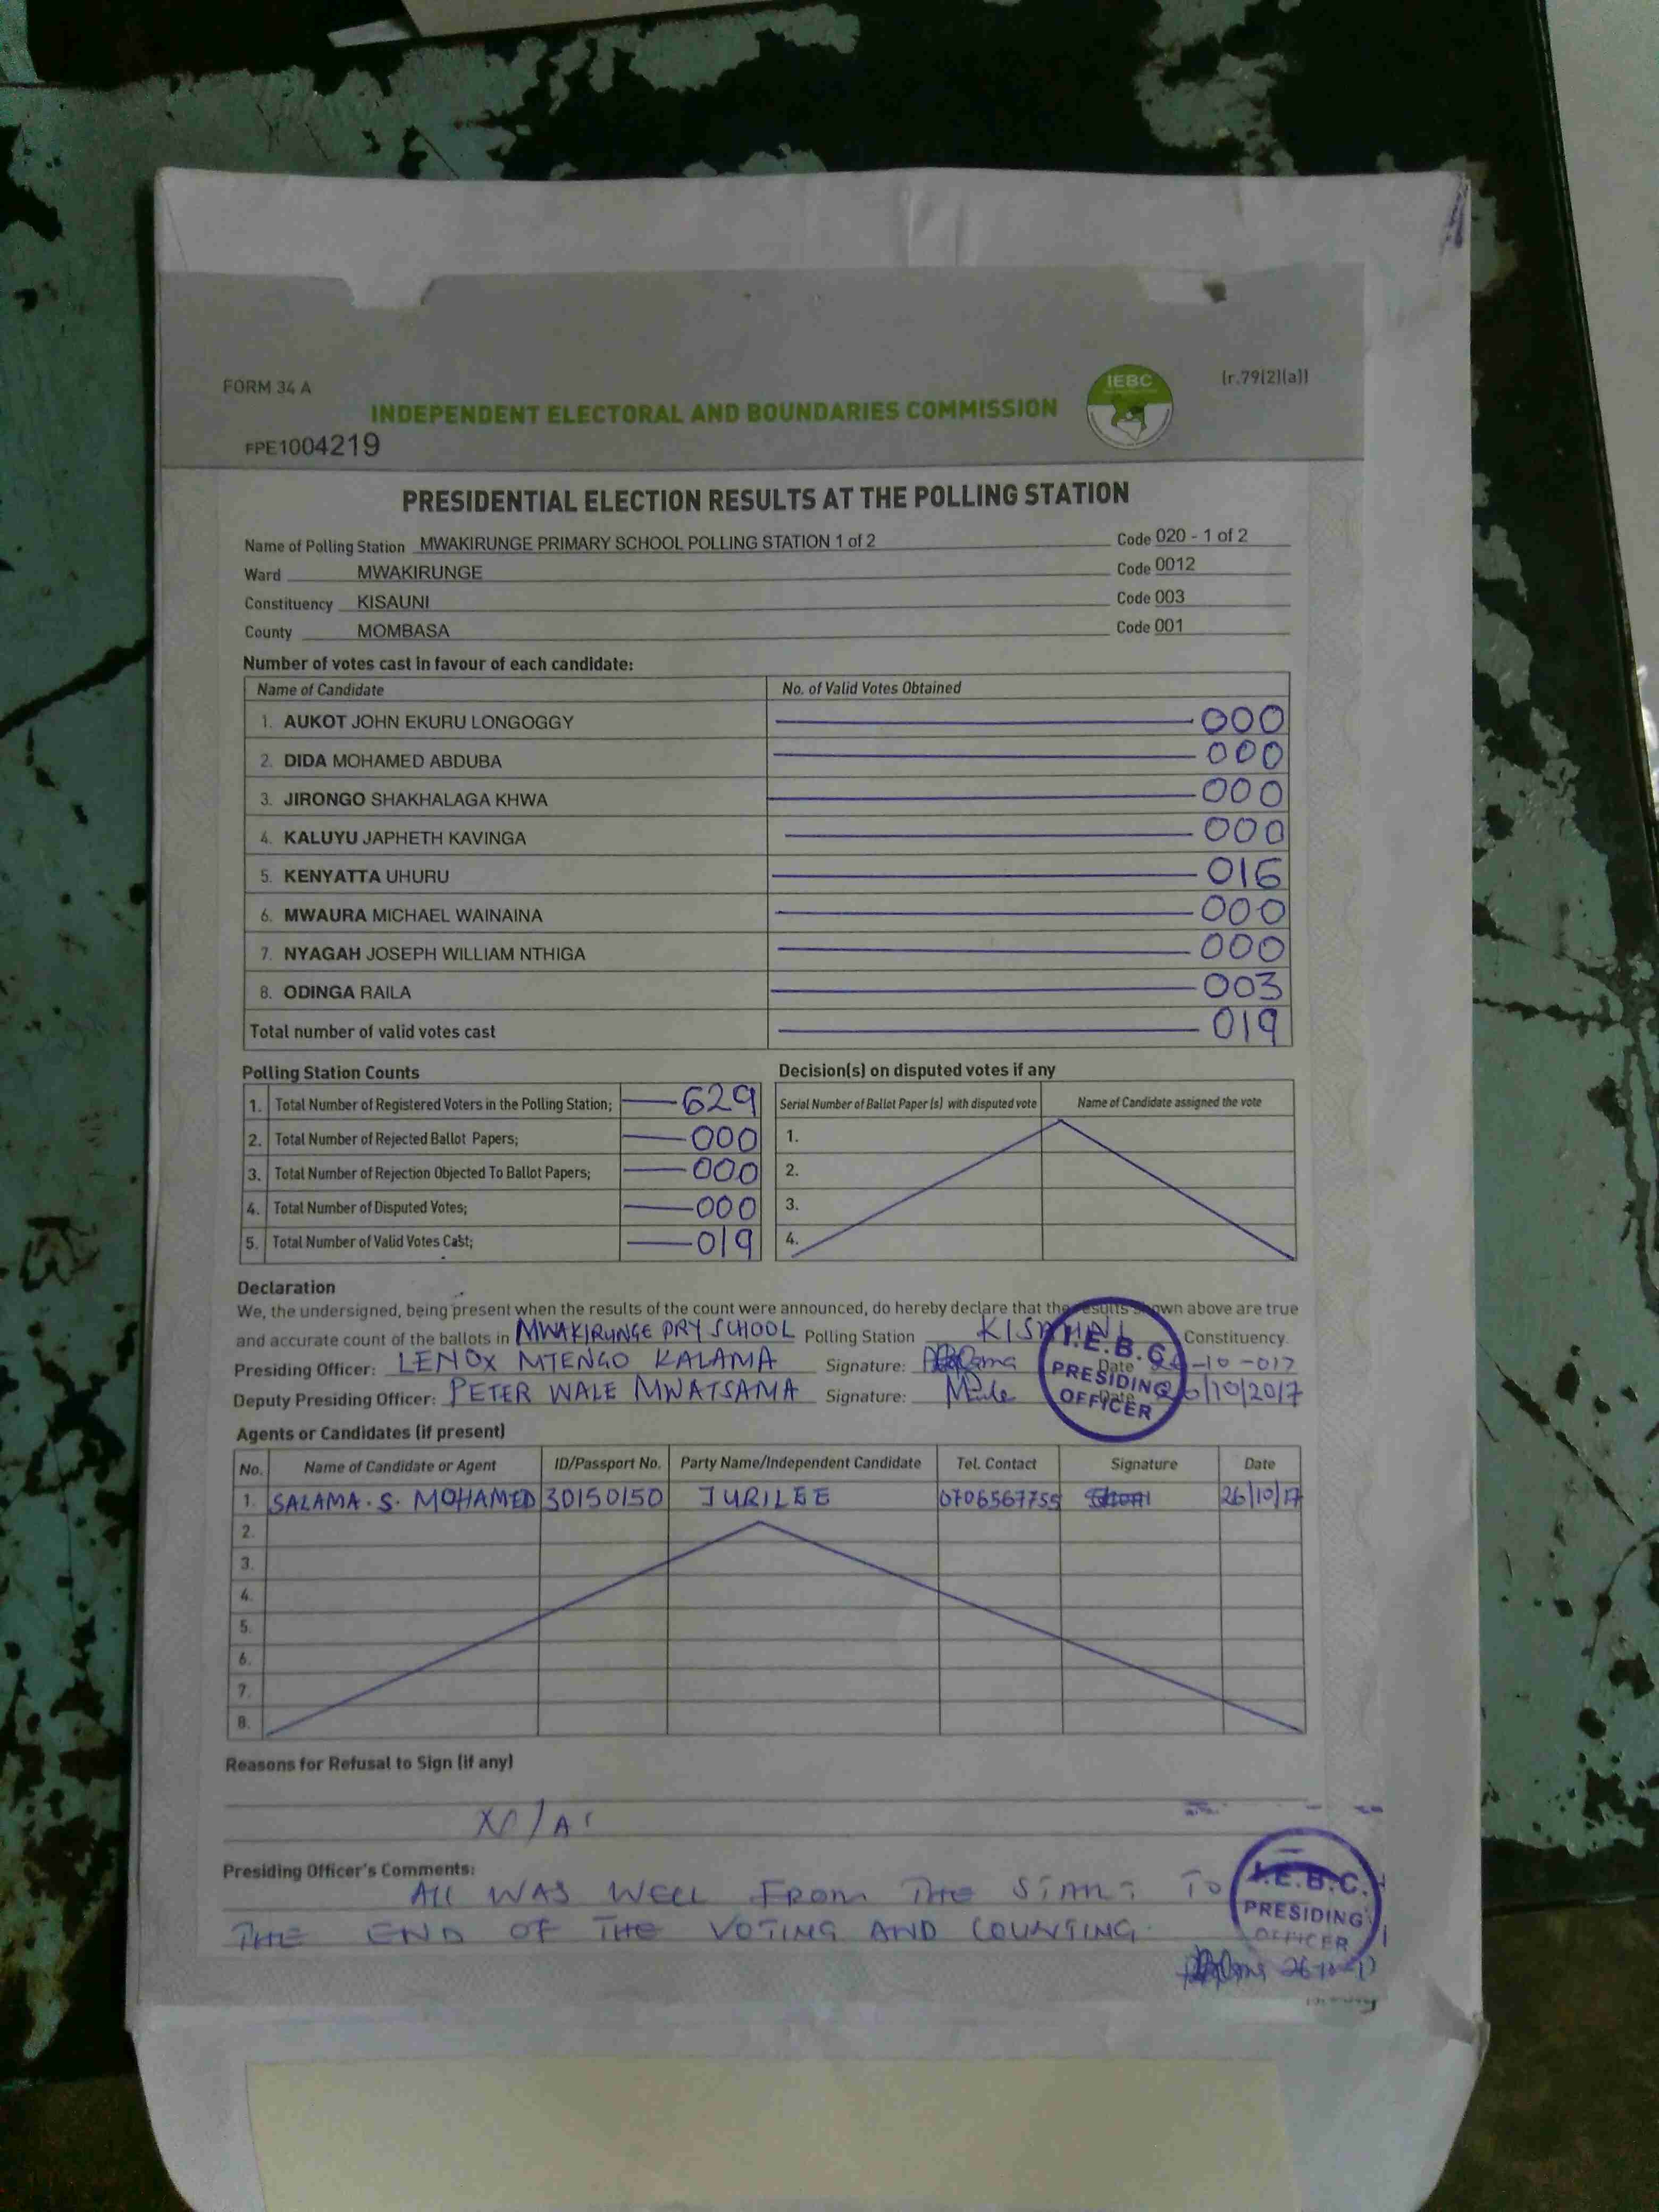 FORM 34 A
IEBC
(r.79(2)(a))
INDEPENDENT ELECTORAL AND BOUNDARIES COMMISSION
FPE1004219
PRESIDENTIAL ELECTION RESULTS AT THE POLLING STATION
Name of Polling Station MWAKIRUNGE PRIMARY SCHOOL POLLING STATION 1 of 2 Code 020 - 1 of 2
Ward MWAKIRUNGE Code 0012
Constituency KISAUNI Code 003
County MOMBASA Code 001
Number of votes cast in favour of each candidate:
Name of Candidate No. of Valid Votes Obtained
1. AUKOT JOHN EKURU LONGOGGY 000
2. DIDA MOHAMED ABDUBA 000
3. JIRONGO SHAKHALAGA KHWA 000
4. KALUYU JAPHETH KAVINGA 000
5. KENYATTA UHURU 016
6. MWAURA MICHAEL WAINAINA 000
7. NYAGAH JOSEPH WILLIAM NTHIGA 000
8. ODINGA RAILA 003
Total number of valid votes cast 019
Polling Station Counts
1. Total Number of Registered Voters in the Polling Station; 629
2. Total Number of Rejected Ballot Papers; 000
3. Total Number of Rejection Objected To Ballot Papers; 000
4. Total Number of Disputed Votes; 000
5. Total Number of Valid Votes Cast; 019
Decision(s) on disputed votes if any
Serial Number of Ballot Paper (s) with disputed vote Name of Candidate assigned the vote
1.
2.
3.
4.
Declaration
We, the undersigned, being present when the results of the count were announced, do hereby declare that the results shown above are true
and accurate count of the ballots in MWAKIRUNGE PRY SCHOOL Polling Station KISAUNI Constituency.
Presiding Officer: LENOX MTENGO KALAMA Signature: Date 26-10-017
Deputy Presiding Officer: PETER WALE MWATSAMA Signature: Date 26/10/2017
I.E.B.C.
PRESIDING
OFFICER
Agents or Candidates (if present)
No. Name of Candidate or Agent ID/Passport No. Party Name/Independent Candidate Tel. Contact Signature Date
1. SALAMA. S. MOHAMED 30150150 JUBILEE 0706567755 26/10/17
2.
3.
4.
5.
6.
7.
8.
Reasons for Refusal to Sign (if any)
N/A
Presiding Officer's Comments:
ALL WAS WELL FROM THE START TO
THE END OF THE VOTING AND COUNTING.
I.E.B.C.
PRESIDING
OFFICER
26-10-17